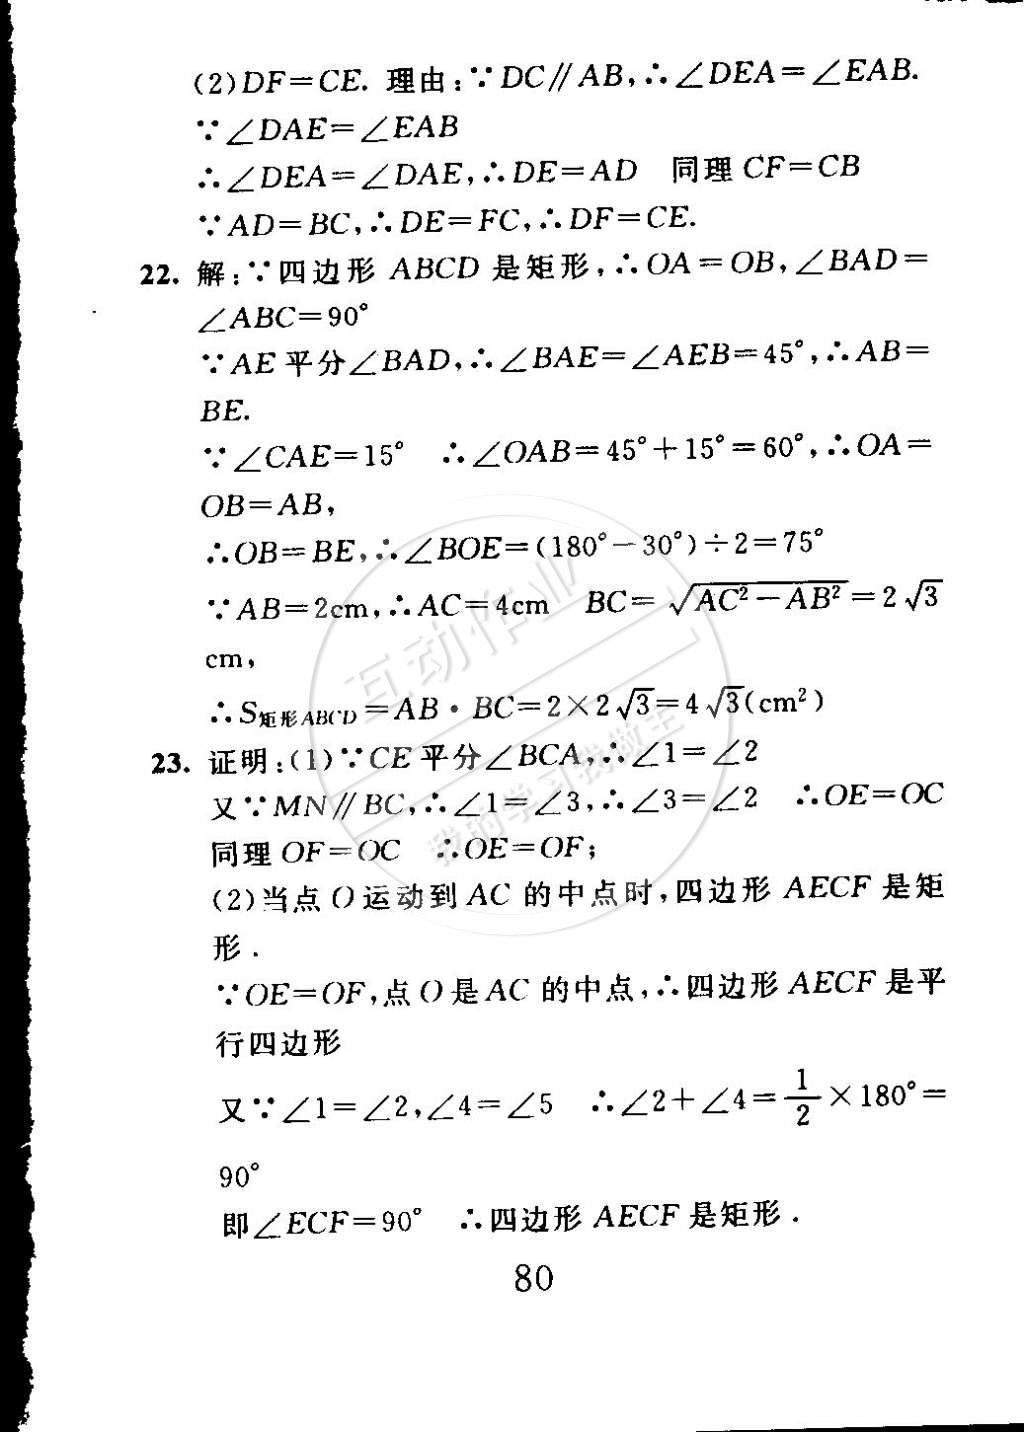 (2)DF=CE. 理由:∵DC∥AB,∴∠DEA=∠EAB.
∵∠DAE=∠EAB
∴∠DEA=∠DAE,∴DE=AD 同理 CF=CB
∵AD=BC,∴DE=FC,∴DF=CE.
22. 解:∵四边形 ABCD 是矩形,∴OA=OB,∠BAD=
∠ABC=90°
∵AE平分∠BAD,∴∠BAE=∠AEB=45°,∴AB=
BE.
∵∠CAE=15° ∴∠OAB=45°+15°=60°,∴OA=
OB=AB,
∴OB=BE,∴∠BOE=(180°-30°)÷2=75°
∵AB=2cm,∴AC=4cm BC=√(AC²-AB²)=2√3
cm,
∴S矩形ABCD=AB·BC=2×2√3=4√3(cm²)
23. 证明:(1)∵CE平分∠BCA,∴∠1=∠2
又∵MN∥BC,∴∠1=∠3,∴∠3=∠2 ∴OE=OC
同理 OF=OC ∴OE=OF;
(2)当点O运动到AC的中点时,四边形 AECF 是矩
形.
∵OE=OF,点O是AC的中点,∴四边形AECF是平
行四边形
又∵∠1=∠2,∠4=∠5 ∴∠2+∠4=1/2×180°=
90°
即∠ECF=90° ∴四边形AECF是矩形.
80
互动作业
我的学习我做主